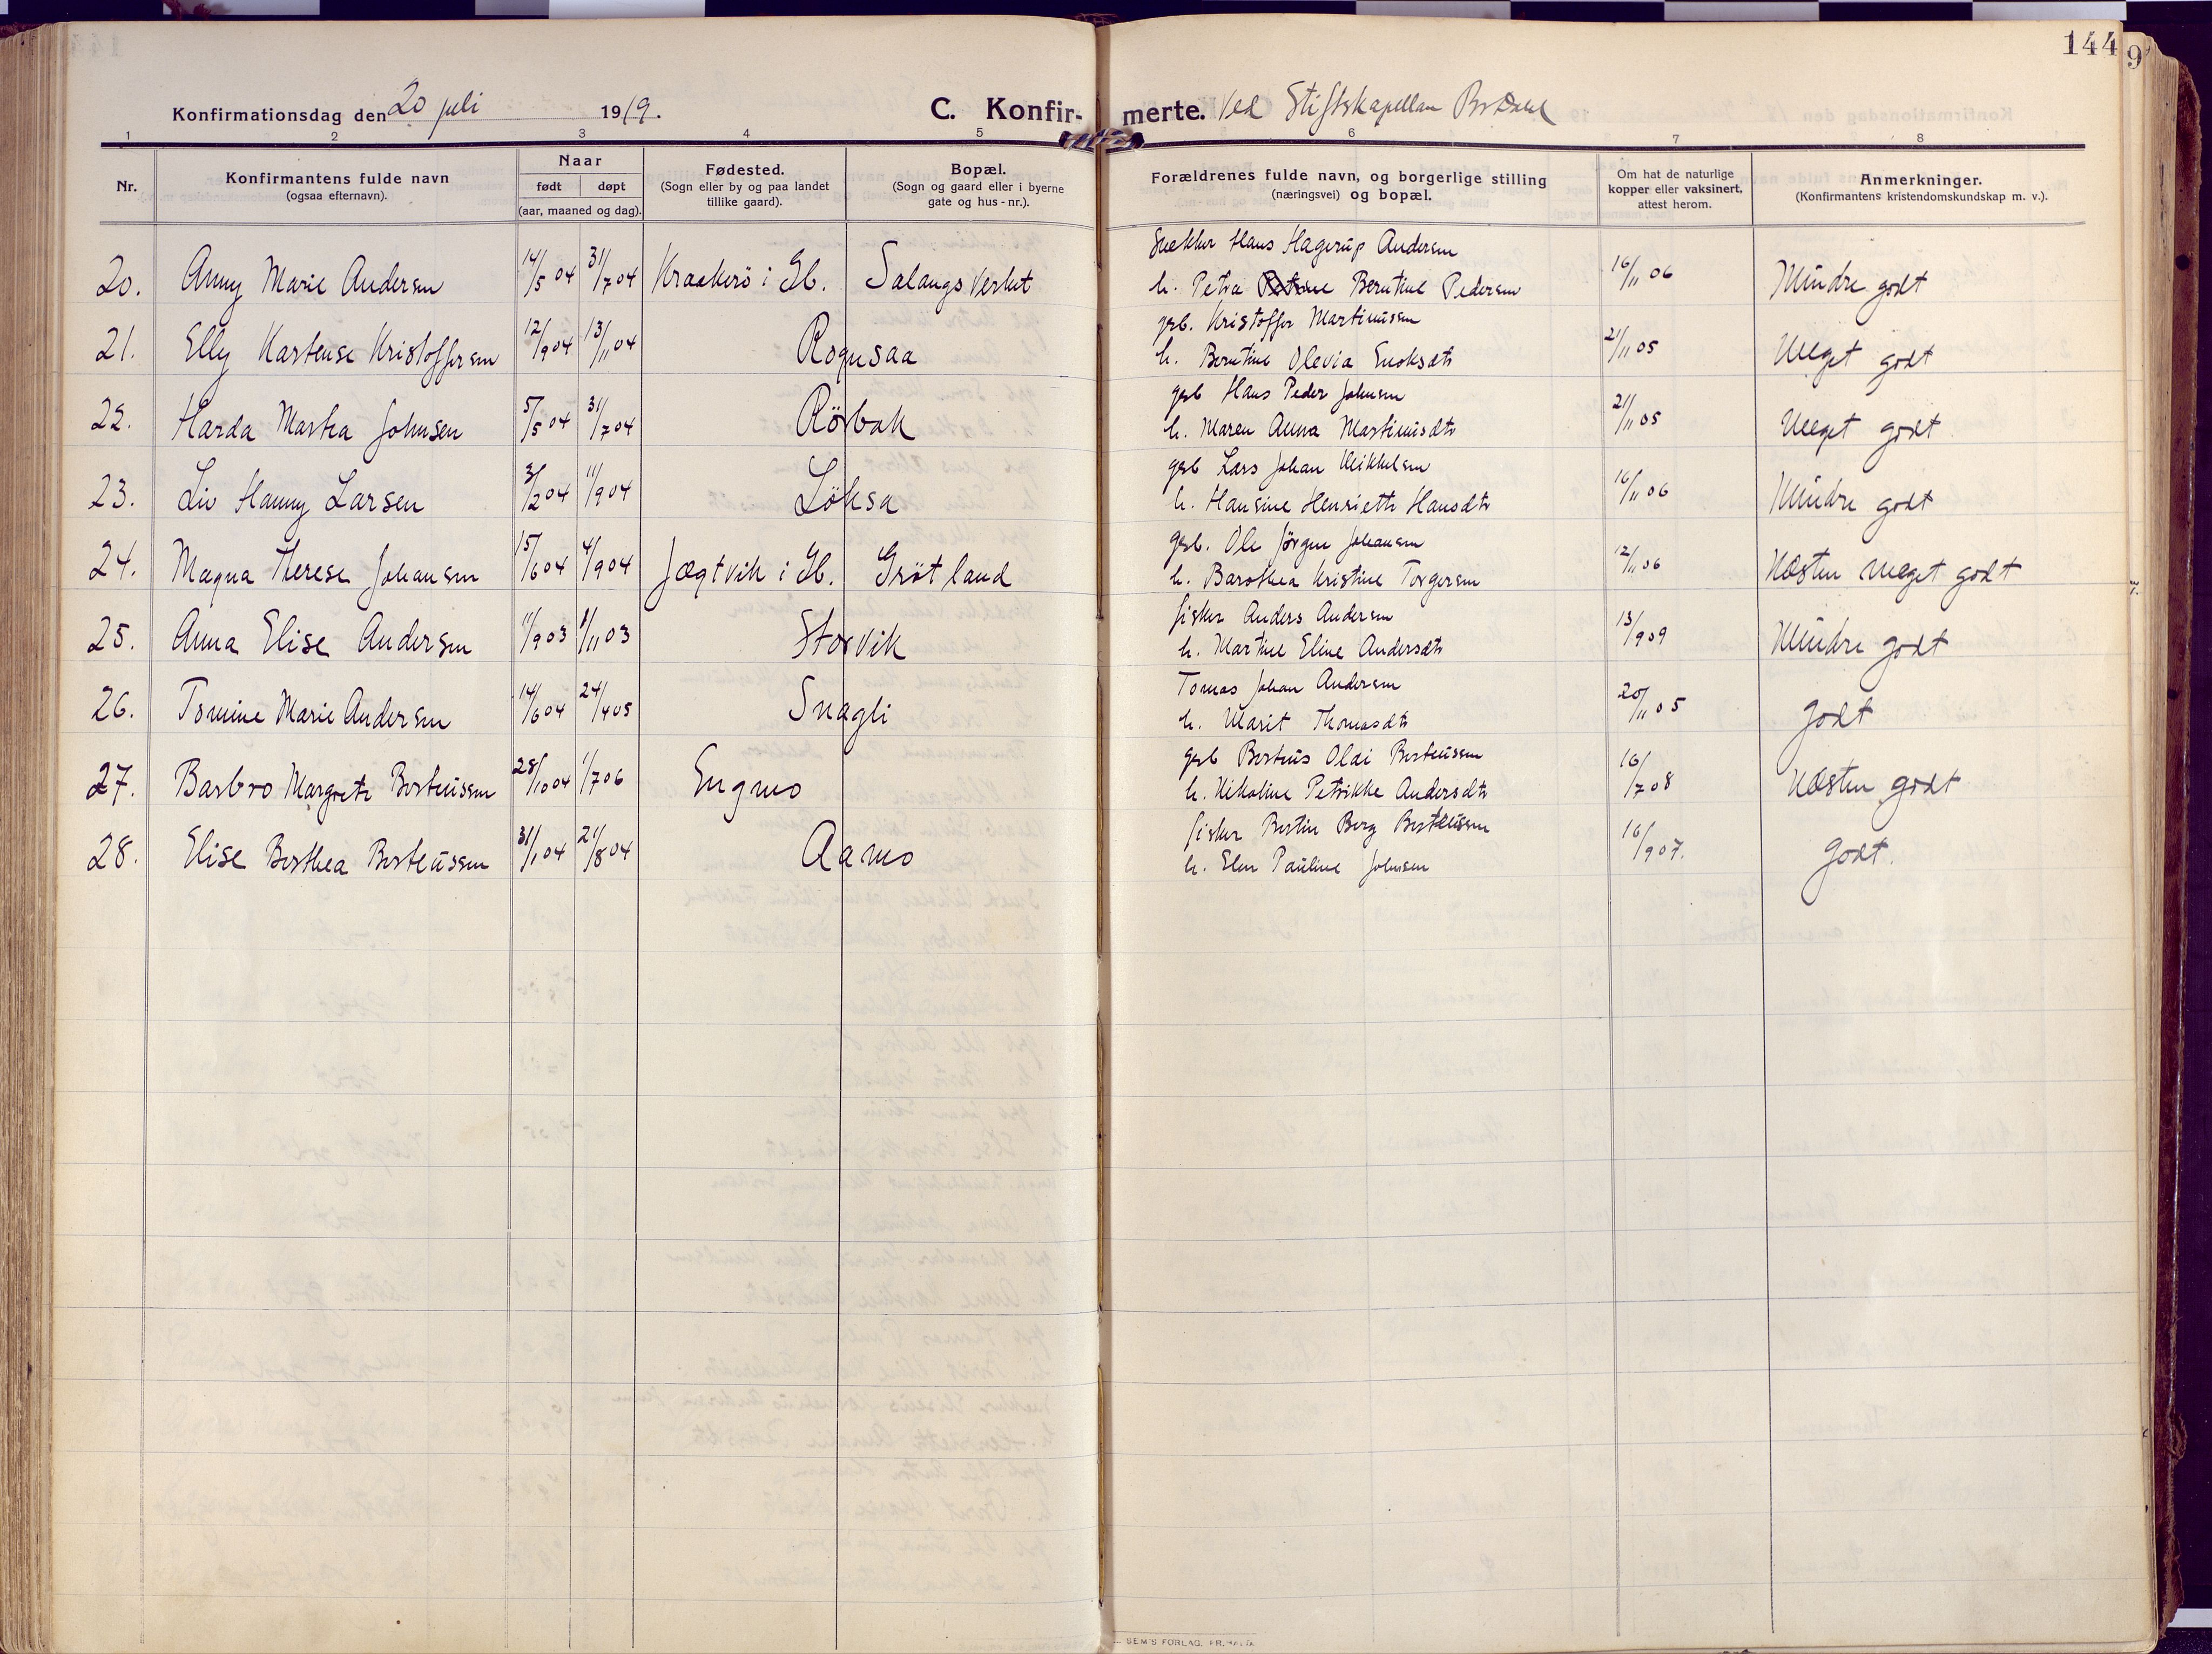 144
9
Konfirmationsdag den 20 juli 1919. C. Konfir- merte. Ved Stiftskapellan
1 2 3 4 5 6 7 8
Nr. Konfirmantens fulde navn (ogsaa efternavn). Naar født døpt (aar, maaned og dag). Fødested. (Sogn eller by og paa landet tillike gaard). Bopæl. (Sogn og gaard eller i byerne gate og hus-nr.). Forældrenes fulde navn, og borgerlige stilling (næringsvei) og bopæl. Om hat de naturlige kopper eller vaksinert, attest herom. Anmerkninger. (Konfirmantens kristendomskundskap m. v.).
Snekker Hans Hagerup Andersen
20. Anny Marie Andersen 14/5 04 31/7 04 Kraakerö i Ib. Salangsverket h. Petra Petrine Berntine Pedersen 16/11 06 Mindre godt
grb. Kristoffer Martinussen
21. Elly Hartense Kristoffersen 12/9 04 13/11 04 Rognsaa h. Berntine Olevia Enoksdtr 21/11 05 Meget godt
grb Hans Peder Johnsen
22. Harda Martea Johnsen 5/5 04 31/7 04 Rörbak h. Maren Anna Martinusdtr 21/11 05 Meget godt
grb Lars Johan Mikkelsen
23. Liv Hanny Larsen 3/2 04 11/9 04 Løksa h. Hansine Henriette Hansdtr 16/11 06 Mindre godt
grb. Ole Jörgen Johansen
24. Magna Therese Johansen 15/6 04 4/9 04 Jægtvik i Ib. Grötland h. Barothea Kristine Torgersen 12/11 06 Næsten meget godt
fisker Anders Andersen
25. Anna Elise Andersen 11/9 03 1/11 03 Storvik h. Martine Eline Andersdtr 13/9 09 Mindre godt
Tomas Johan Andersen
26. Tomine Marie Andersen 14/6 04 24/4 05 Snagli h. Marit Thomasdtr 20/11 05 godt
grb Berteus Oldi Berteussen
27. Barbro Margrete Berteussen 28/10 04 1/7 06 Engmo h. Nikoline Petrikke Andersdtr 16/7 08 Næsten godt
fisker Bertin Berg Berteussen
28. Elise Berthea Berteussen 31/1 04 21/8 04 Aamo h. Elen Pauline Johnsen 16/9 07. Godt.
SEM'S FORLAG, FR.HALD.